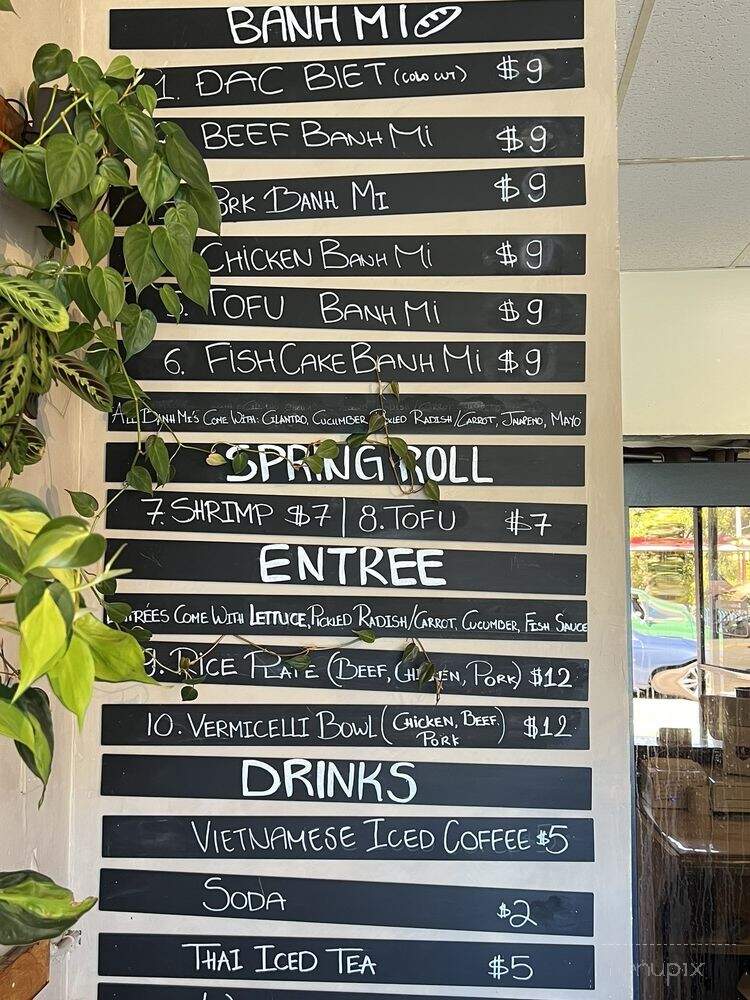 BANH MI
1. ĐAC BIET (COLD CUT) $9
BEEF BANH MI $9
ORK BANH MI $9
CHICKEN BANH MI $9
TOFU BANH MI $9
6. FISHCAKE BANH MI $9
ALL BANH MI'S COME WITH: CILANTRO, CUCUMBER, PICKLED RADISH/CARROT, JALAPENO, MAYO
SPRING ROLL
7. SHRIMP $7 | 8. TOFU $7
ENTREE
ENTRÉES COME WITH LETTUCE, PICKLED RADISH/CARROT, CUCUMBER, FISH SAUCE
9. RICE PLATE (BEEF, CHICKEN, PORK) $12
10. VERMICELLI BOWL (CHICKEN, BEEF, PORK) $12
DRINKS
VIETNAMESE ICED COFFEE $5
SODA $2
THAI ICED TEA $5
menupix